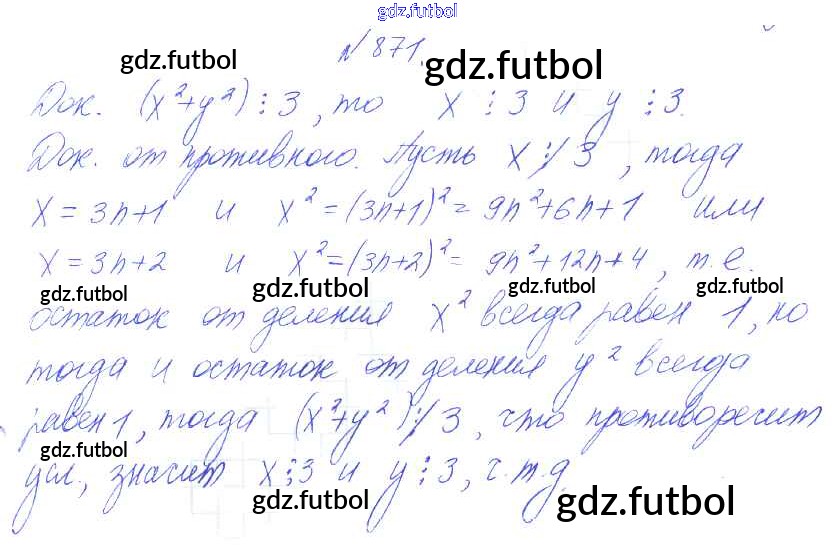 gdz.futbol
N 871.
gdz.futbol gdz.futbol
Док. (x²+y²)⋮3, то x⋮3 и y⋮3.
Док. от противного. Пусть x⋮̸3, тогда
x=3n+1 и x²=(3n+1)²=9n²+6n+1 или
x=3n+2 и x²=(3n+2)²=9n²+12n+4, т.е.
gdz.futbol gdz.futbol gdz.futbol gdz.futbol
остаток от деления x² всегда равен 1, но
тогда и остаток от деления y² всегда
равен 1, тогда (x²+y²)⋮̸3, что противоречит
gdz.futbol
усл., значит x⋮3 и y⋮3, ч.т.д.
gdz.futbol gdz.futbol